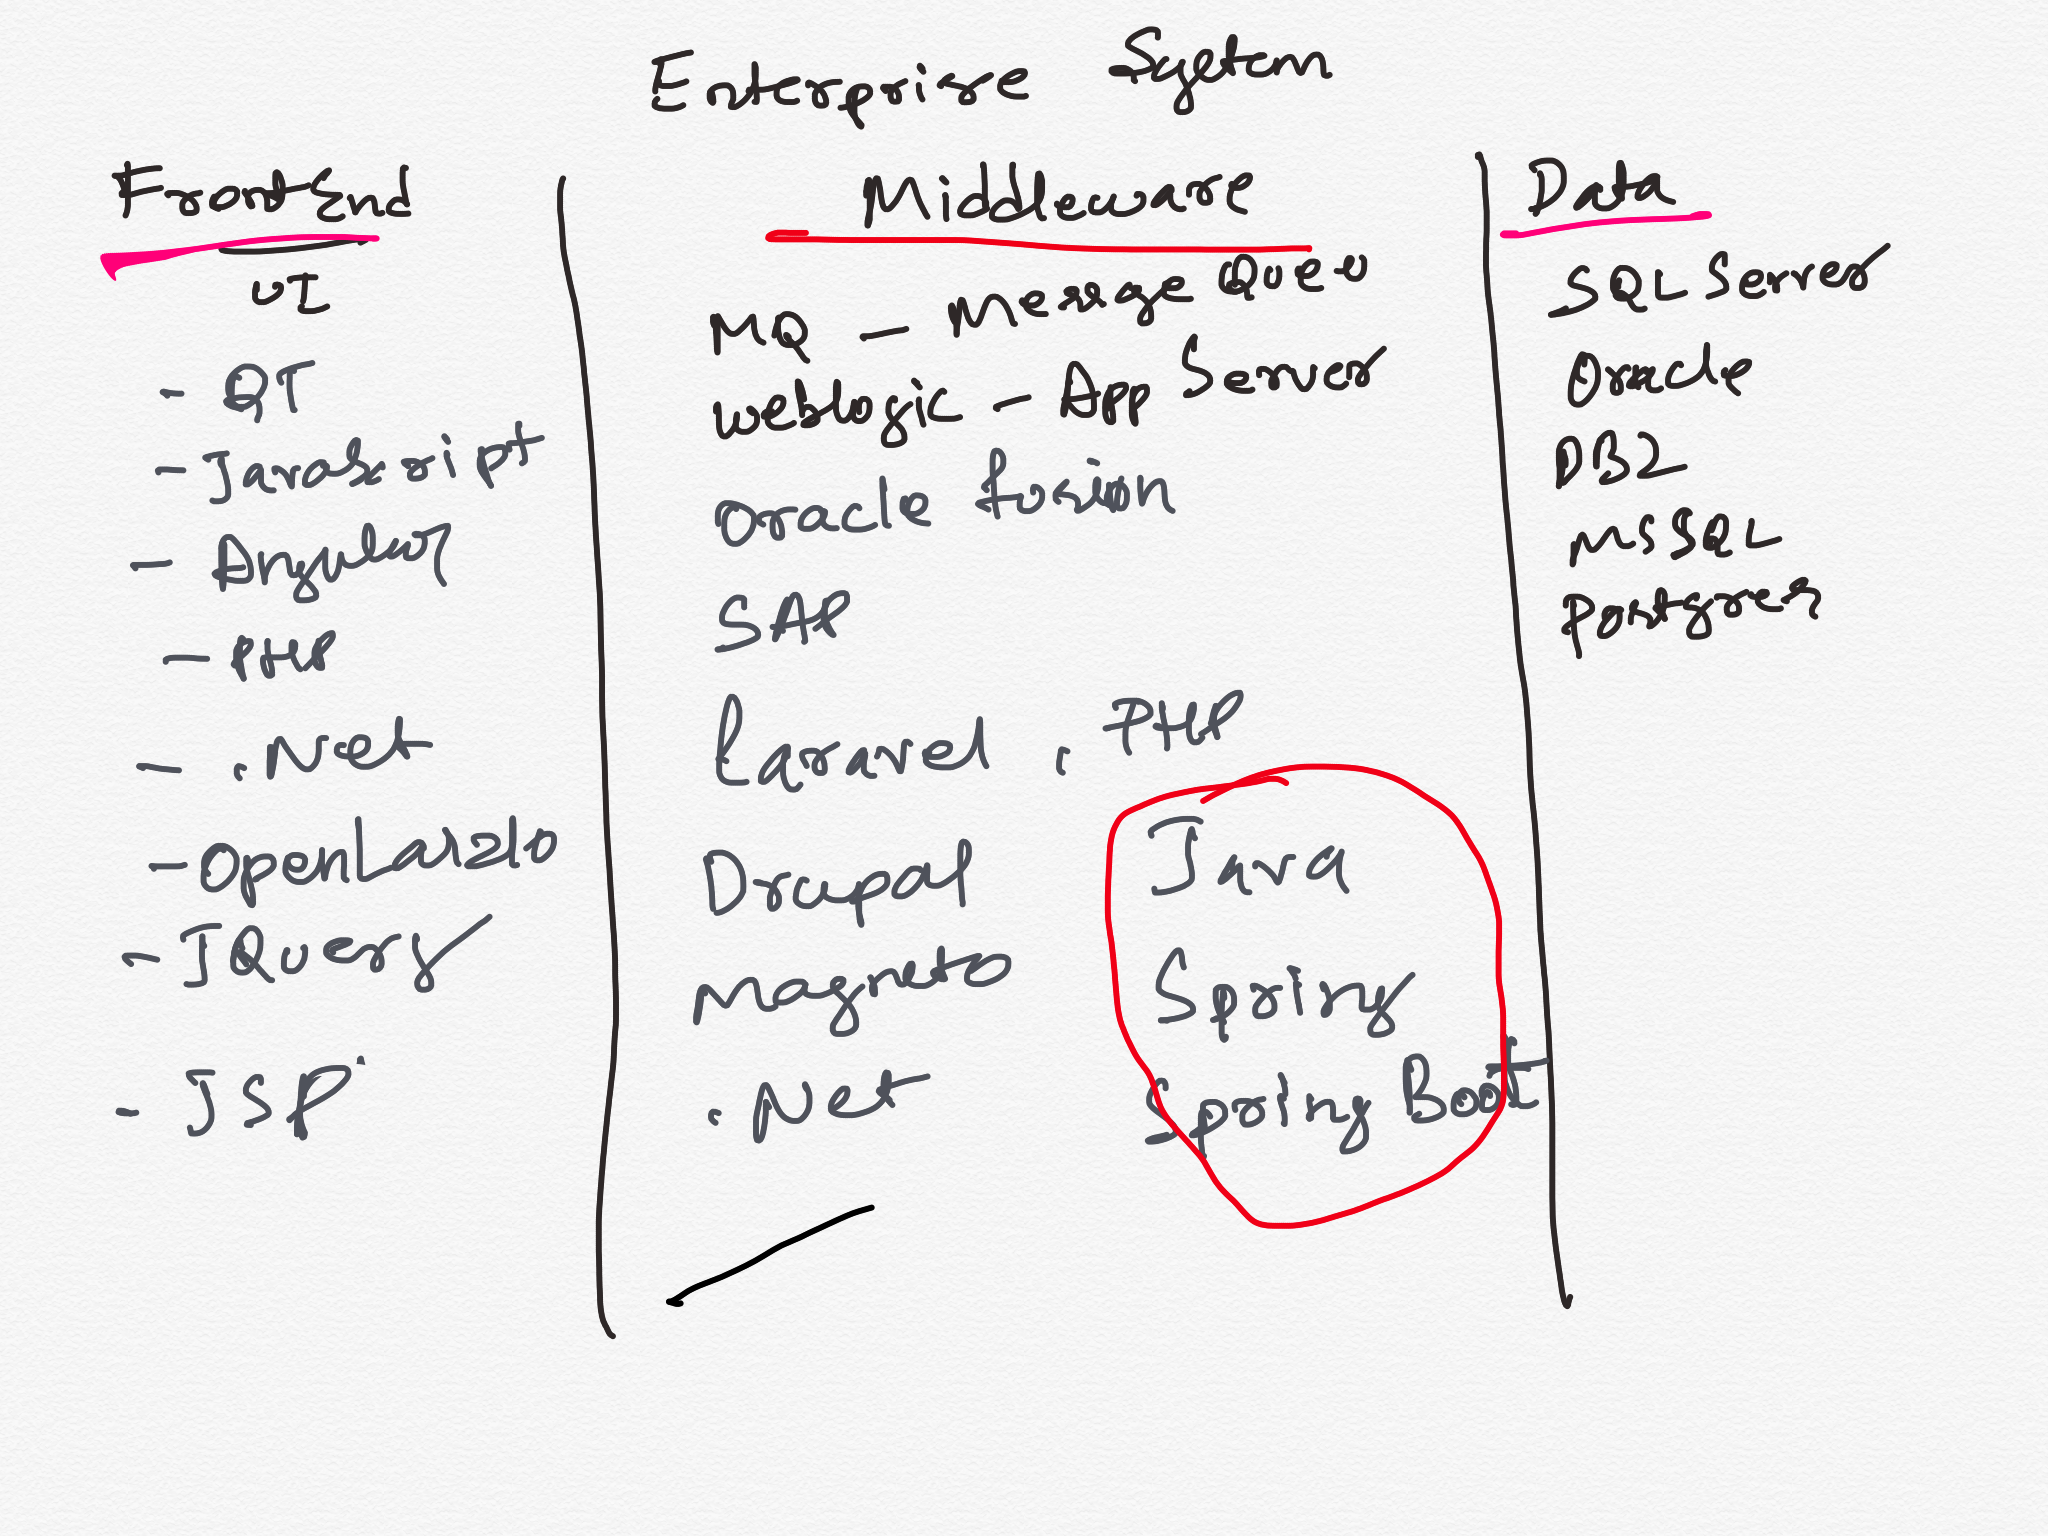 Enterprise System
FrontEnd
UI
- QT
- JavaScript
- Angular
- PHP
- .Net
- OpenLaszlo
- JQuery
- JSP
Middleware
MQ - Message Queu
Weblogic - App Server
Oracle fusion
SAP
Laravel , PHP
Drupal
Magneto
.Net
Java
Spring
Spring Boot
Data
SQL Server
Oracle
DB2
MSSQL
Postgres